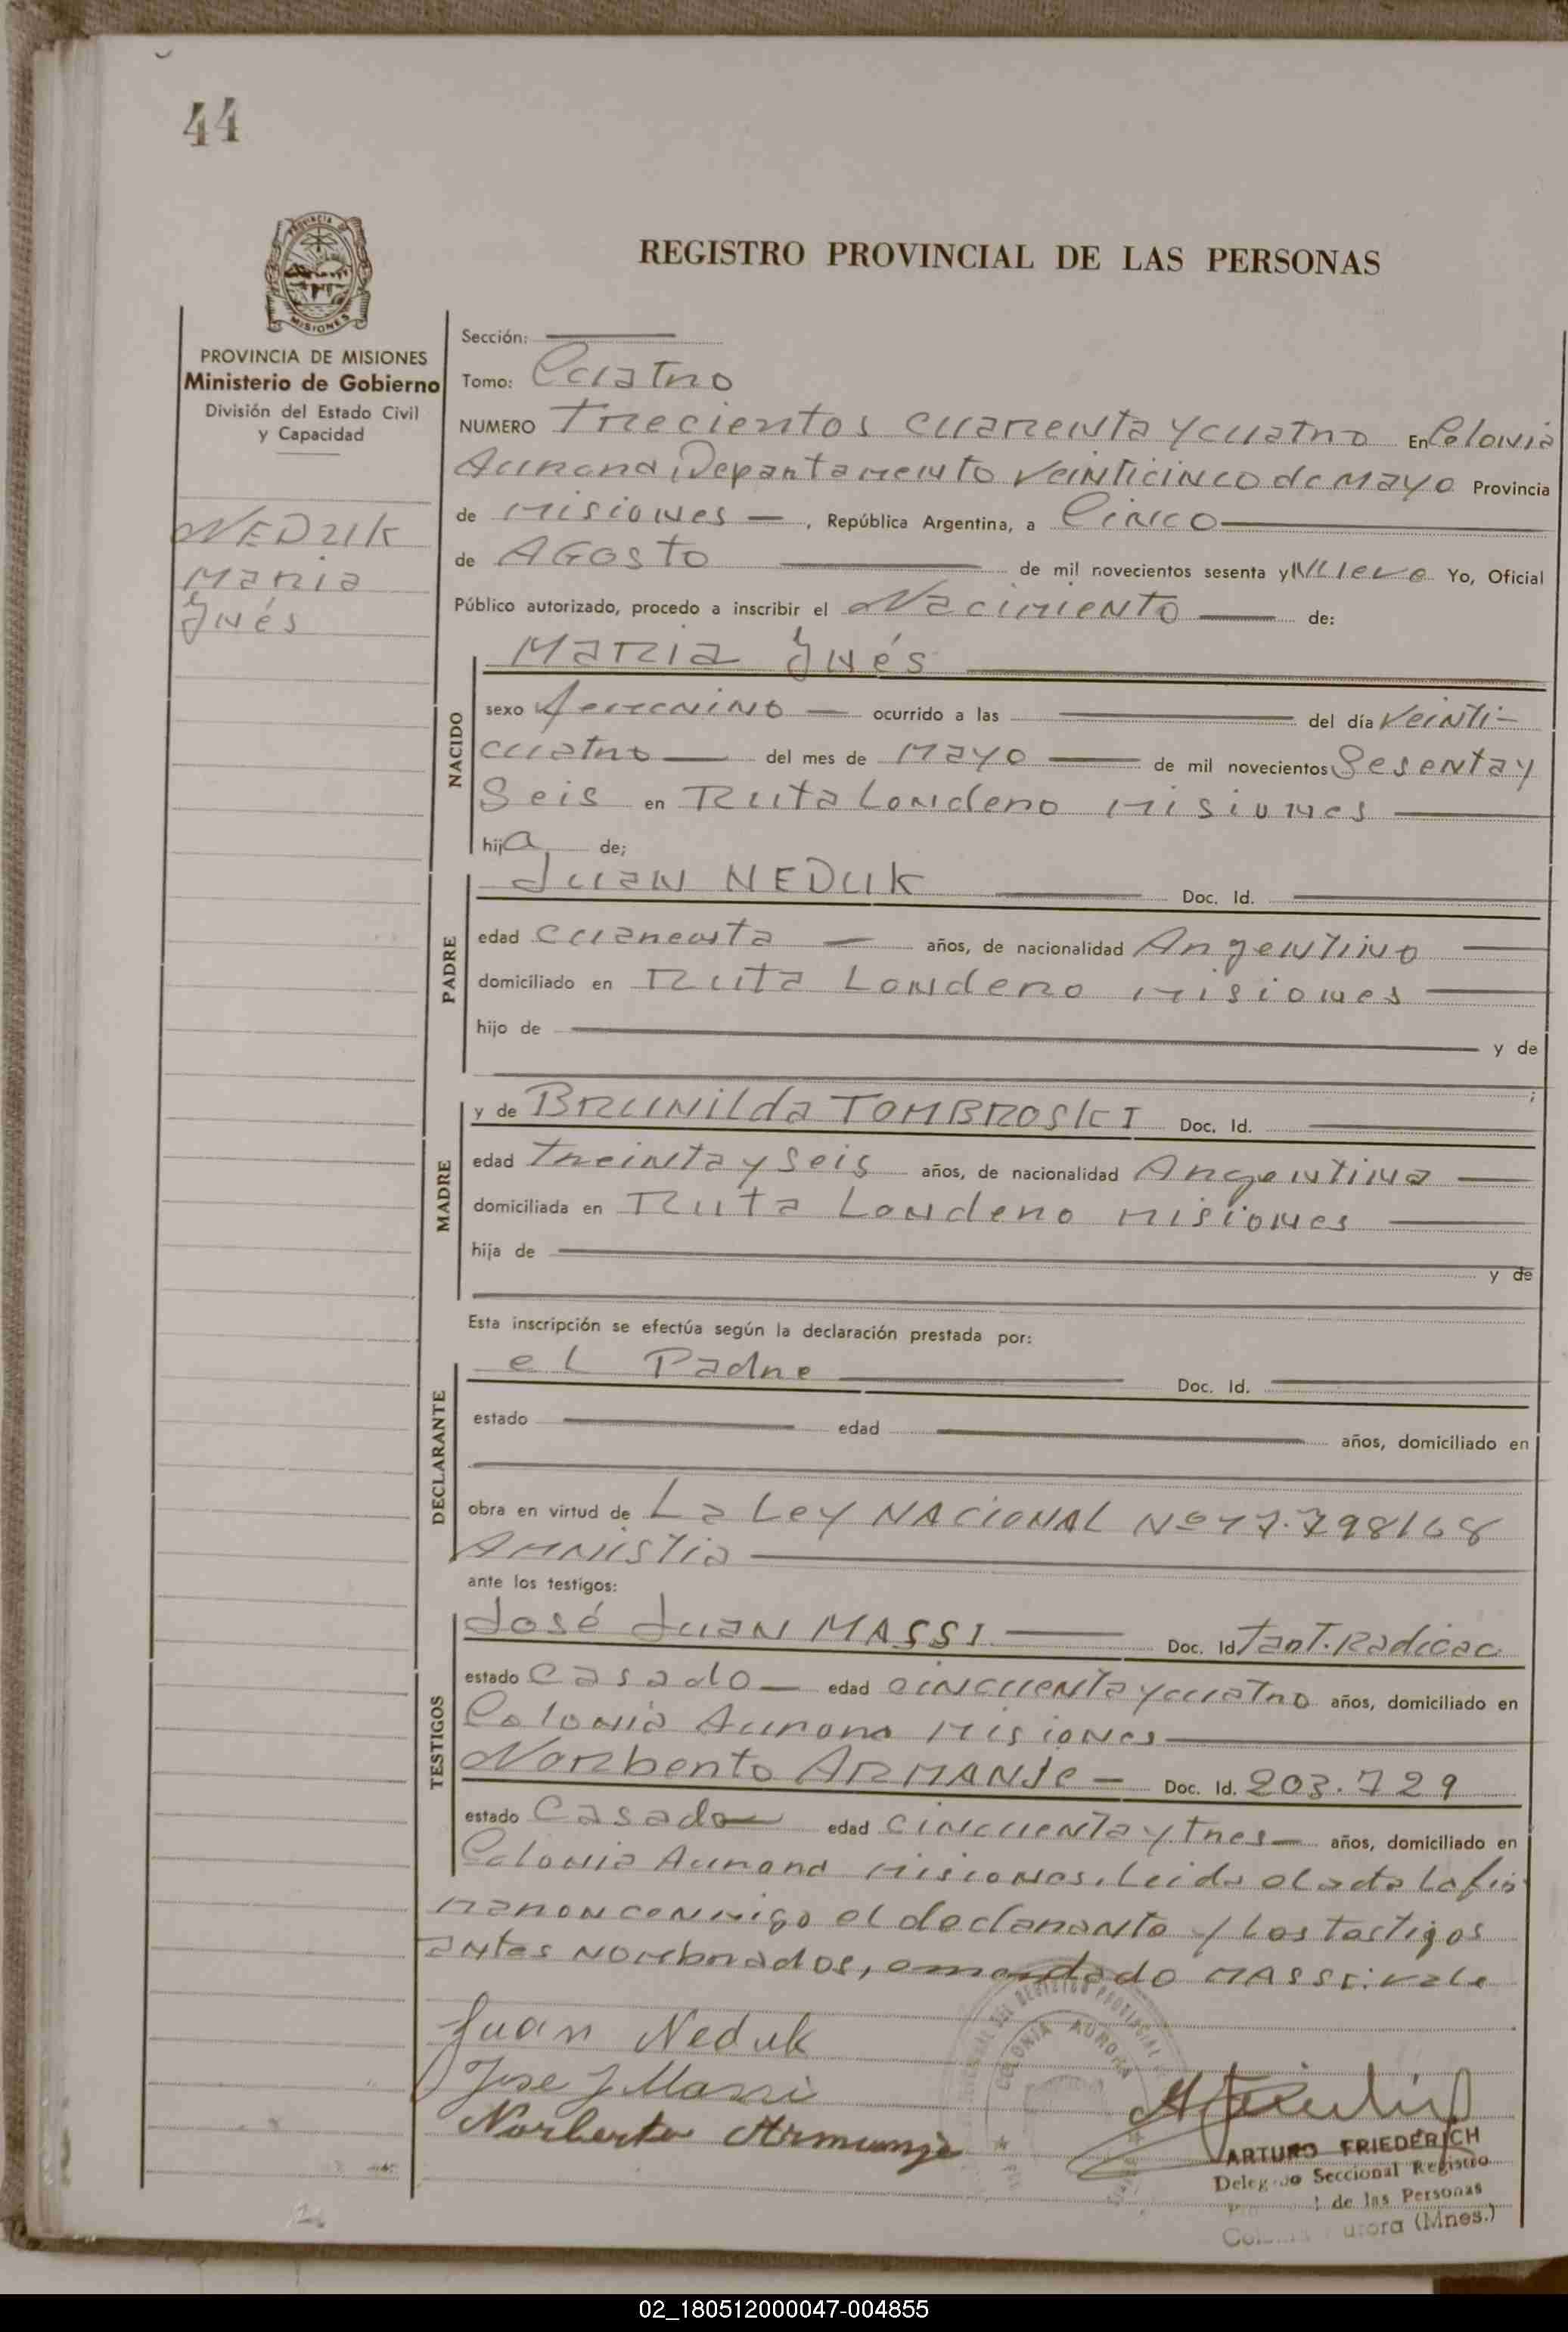 44
PROVINCIA
MISIONES
PROVINCIA DE MISIONES
Ministerio de Gobierno
División del Estado Civil
y Capacidad
NEDUK
Maria
Ynés
REGISTRO PROVINCIAL DE LAS PERSONAS
Sección:
Tomo: Cuatro
NUMERO Trecientos cuarenta y cuatro En Colonia
Aurora, Departamento Veinticinco de Mayo Provincia
de Misiones —, República Argentina, a Cinco
de AGosto de mil novecientos sesenta y Nueve Yo, Oficial
Público autorizado, procedo a inscribir el Nacimiento — de:
Maria Ynés
NACIDO
sexo femenino — ocurrido a las — del día Veinti-
cuatro — del mes de Mayo — de mil novecientos Sesenta y
Seis en Ruta Londero Misiones —
hija de;
PADRE
Juan NEDUK — Doc. Id. —
edad cuarenta — años, de nacionalidad Argentino —
domiciliado en Ruta Londero Misiones —
hijo de — y de
— ;
MADRE
y de Brunilda TOMBROSKI Doc. Id. —
edad Treinta y Seis años, de nacionalidad Argentina —
domiciliada en Ruta Londero Misiones —
hija de — y de
Esta inscripción se efectúa según la declaración prestada por:
DECLARANTE
el Padre — Doc. Id. —
estado — edad — años, domiciliado en
obra en virtud de La Ley NACIONAL Nº 17.798/68
AMNISTia —
ante los testigos:
TESTIGOS
José Juan MASSI — Doc. Id Tant. Radicac
estado Casado — edad cincuenta y cuatro años, domiciliado en
Colonia Aurora Misiones —
Norberto ARMANJe — Doc. Id. 203.729
estado Casado edad Cincuenta y tres — años, domiciliado en
Colonia Aurora Misiones, Leida el acta la fir
maron conmigo el declarante y los testigos
antes nombrados, enmendado MASSI: vale
Juan Neduk
Jose J Massi
Norberto Armunje
COLONIA AURORA
ARTURO FRIEDERICH
Seccional Registro
de las Personas
(Mnes.)
02_180512000047-004855